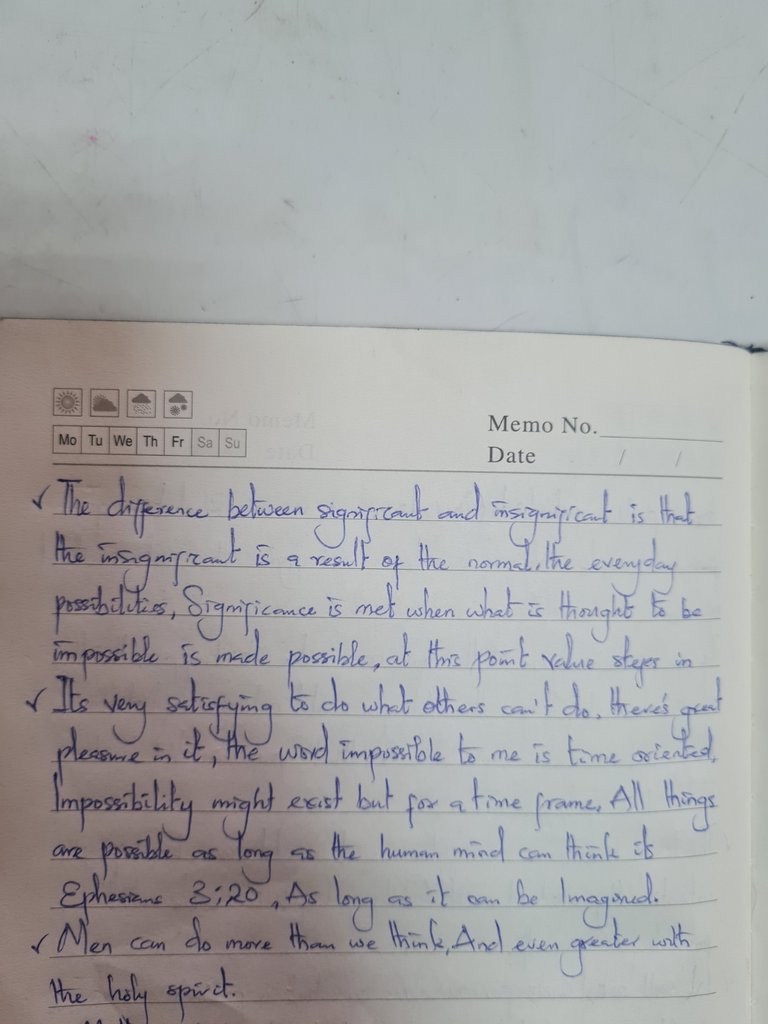 Memo No.
Mo Tu We Th Fr Sa Su
Date / /
✓ The difference between significant and insignificant is that
the insignificant is a result of the normal, the everyday
possibilities, Significance is met when what is thought to be
impossible is made possible, at this point value steps in
✓ Its very satisfying to do what others can't do, there's great
pleasure in it, the word impossible to me is time oriented,
Impossibility might exist but for a time frame, All things
are possible as long as the human mind can think it
Ephesians 3:20, As long as it can be Imagined.
✓ Men can do more than we think, And even greater with
the holy spirit.